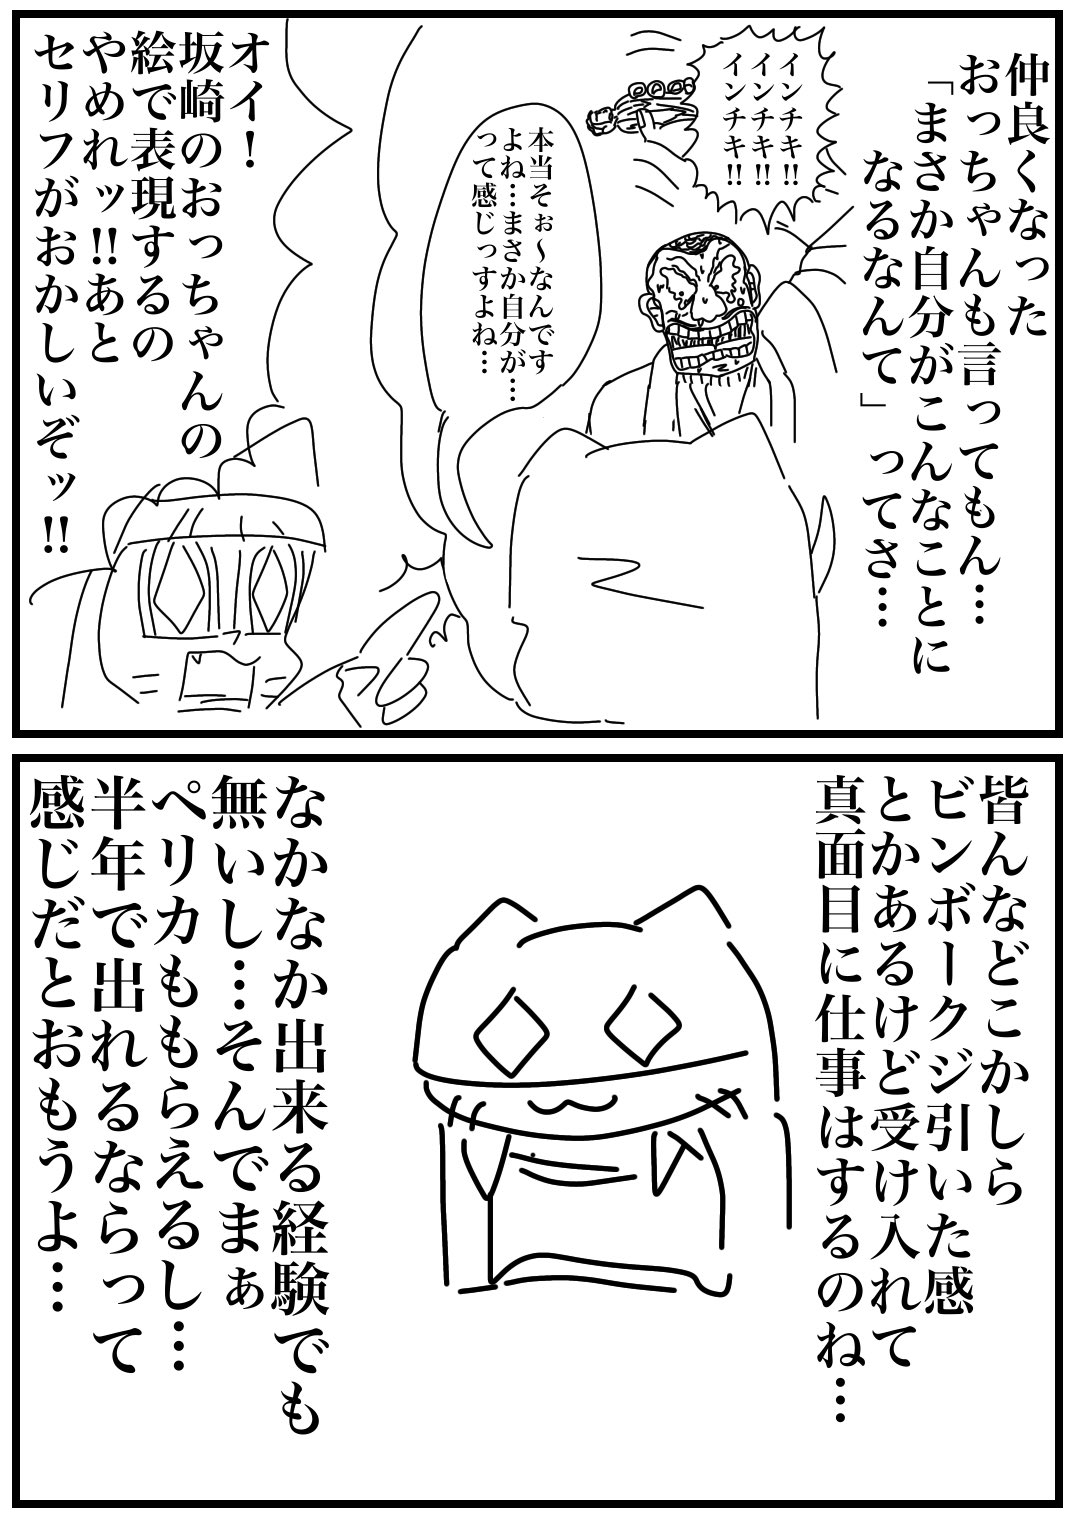 仲良くなった
おっちゃんも言ってもん…
「まさか自分がこんなことに
なるなんて」ってさ…
インチキ!!
インチキ!!
インチキ!!
本当そぉ〜なんです
よね…まさか自分が…
って感じっすよね…
オイ!
坂崎のおっちゃんの
絵で表現するの
やめれッ!!あと
セリフがおかしいぞッ!!
皆んなどこかしら
ビンボークジ引いた感
とかあるけど受け入れて
真面目に仕事はするのね…
なかなか出来る経験でも
無いし…そんでまぁ
ペリカももらえるし…
半年で出れるならって
感じだとおもうよ…